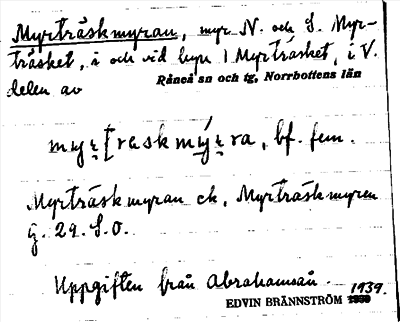 Myrträskmyran, myr N. och S. Myr-
träsket, å och vid byn 1 Myrträsket, i V.
Råneå sn och tg, Norrbottens län
delen av
bf. fem.
Myrträskmyran ek. Myrträskmyren
G. 29. S.O.
Uppgiften från Abrahamsån. 1939.
EDVIN BRÄNNSTRÖM